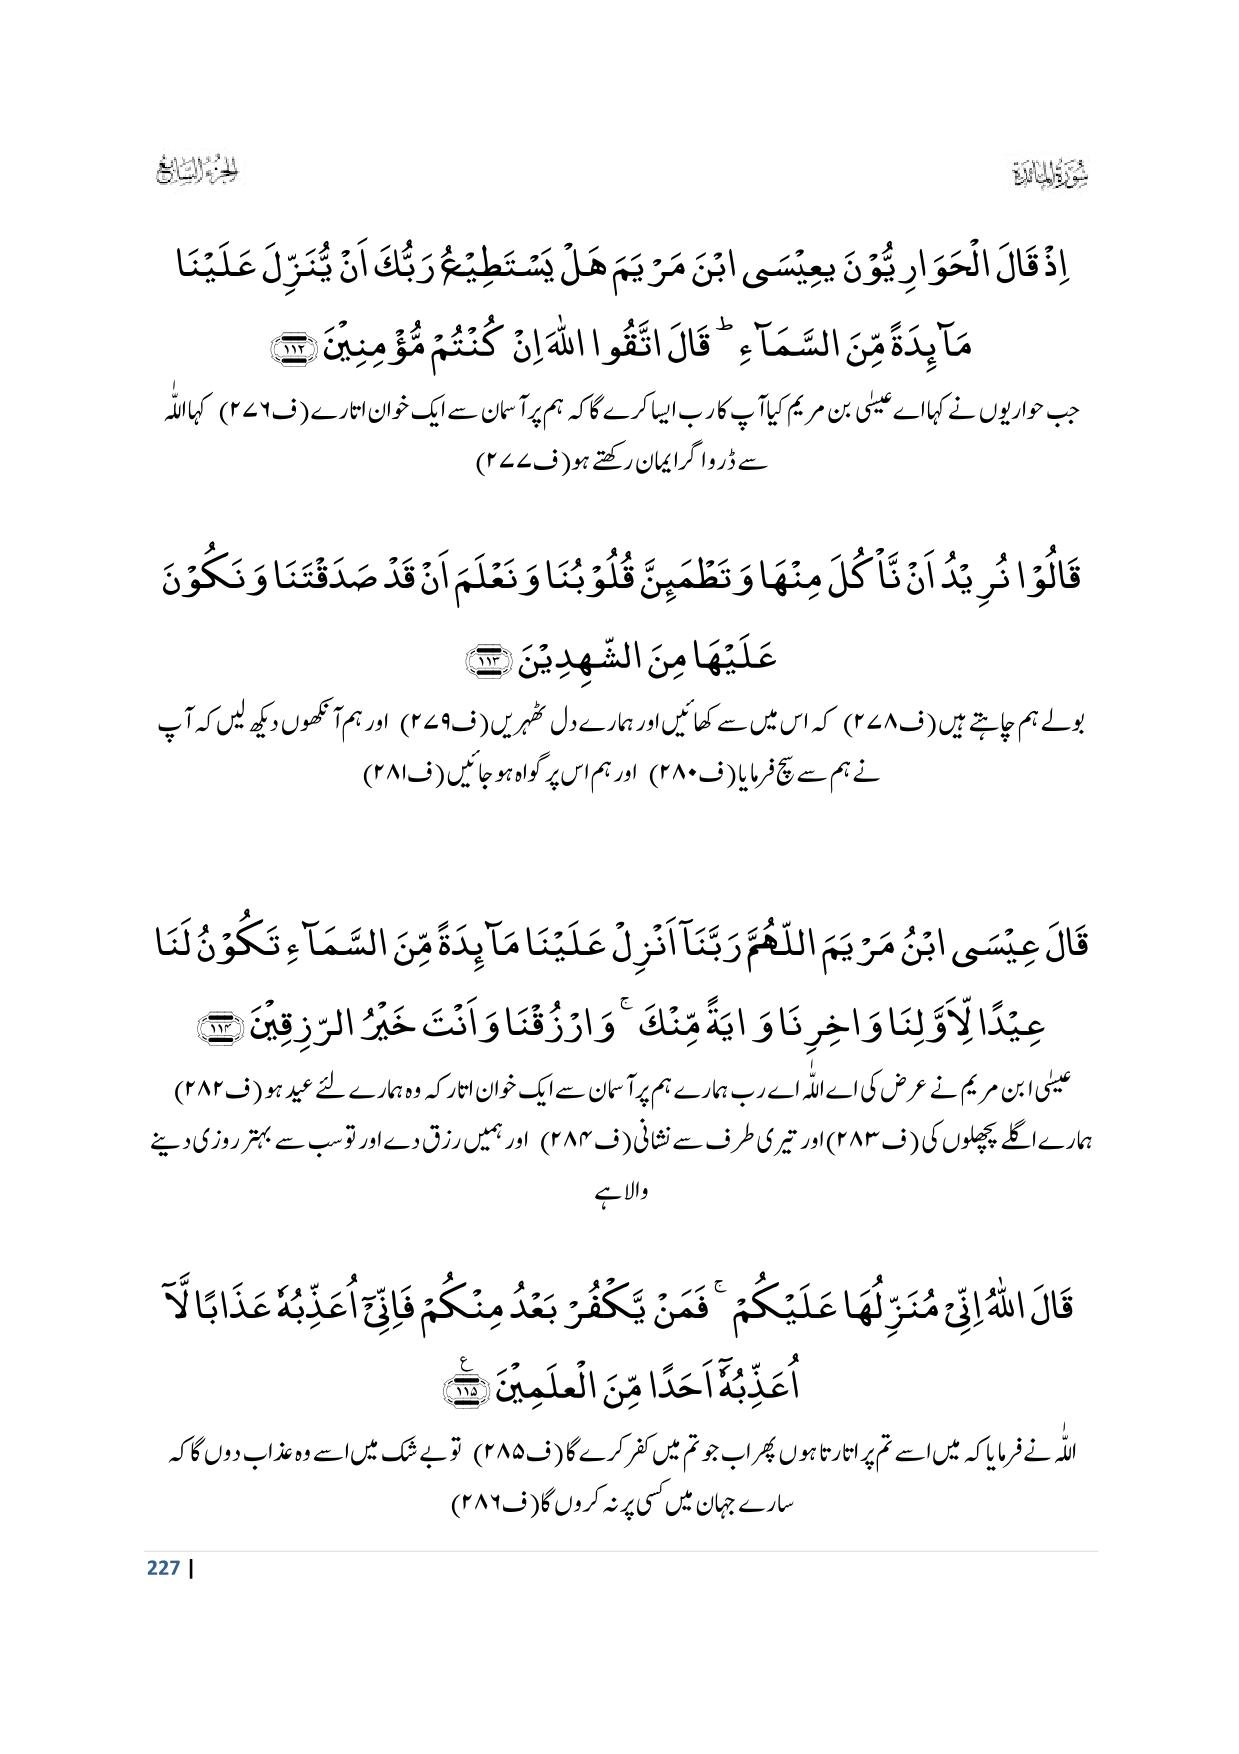 سُوْرَۃُ الْمَائِدَۃ
الجُزءُ السَّابِع
اِذْ قَالَ الْحَوَارِیُّوْنَ یٰعِیْسَی ابْنَ مَرْیَمَ هَلْ یَسْتَطِیْعُ رَبُّكَ اَنْ یُّنَزِّلَ عَلَیْنَا
مَآىِٕدَةً مِّنَ السَّمَآءِ ؕ قَالَ اتَّقُوا اللّٰهَ اِنْ كُنْتُمْ مُّؤْمِنِیْنَ ﴿۱۱۲﴾
جب حواریوں نے کہا اے عیسٰی بن مریم کیا آپ کا رب ایسا کرے گا کہ ہم پر آسمان سے ایک خوان اتارے (ف۲۷۶) کہا اللّٰہ
سے ڈرو اگر ایمان رکھتے ہو (ف۲۷۷)
قَالُوْا نُرِیْدُ اَنْ نَّاْكُلَ مِنْهَا وَ تَطْمَىِٕنَّ قُلُوْبُنَا وَ نَعْلَمَ اَنْ قَدْ صَدَقْتَنَا وَ نَكُوْنَ
عَلَیْهَا مِنَ الشّٰهِدِیْنَ ﴿۱۱۳﴾
بولے ہم چاہتے ہیں (ف۲۷۸) کہ اس میں سے کھائیں اور ہمارے دل ٹھہریں (ف۲۷۹) اور ہم آنکھوں دیکھ لیں کہ آپ
نے ہم سے سچ فرمایا (ف۲۸۰) اور ہم اس پر گواہ ہو جائیں (ف۲۸۱)
قَالَ عِیْسَی ابْنُ مَرْیَمَ اللّٰهُمَّ رَبَّنَاۤ اَنْزِلْ عَلَیْنَا مَآىِٕدَةً مِّنَ السَّمَآءِ تَكُوْنُ لَنَا
عِیْدًا لِّاَوَّلِنَا وَ اٰخِرِنَا وَ اٰیَةً مِّنْكَ ۚ وَ ارْزُقْنَا وَ اَنْتَ خَیْرُ الرّٰزِقِیْنَ ﴿۱۱۴﴾
عیسٰی ابن مریم نے عرض کی اے اللّٰہ اے رب ہمارے ہم پر آسمان سے ایک خوان اتار کہ وہ ہمارے لئے عید ہو (ف۲۸۲)
ہمارے اگلے پچھلوں کی (ف۲۸۳) اور تیری طرف سے نشانی (ف۲۸۴) اور ہمیں رزق دے اور تو سب سے بہتر روزی دینے
والا ہے
قَالَ اللّٰهُ اِنِّیْ مُنَزِّلُهَا عَلَیْكُمْ ۚ فَمَنْ یَّكْفُرْ بَعْدُ مِنْكُمْ فَاِنِّیْۤ اُعَذِّبُهٗ عَذَابًا لَّاۤ
اُعَذِّبُهٗۤ اَحَدًا مِّنَ الْعٰلَمِیْنَ ﴿۱۱۵﴾ ع
اللّٰہ نے فرمایا کہ میں اسے تم پر اتارتا ہوں پھر اب جو تم میں کفر کرے گا (ف۲۸۵) تو بے شک میں اسے وہ عذاب دوں گا کہ
سارے جہان میں کسی پر نہ کروں گا (ف۲۸۶)
227 |